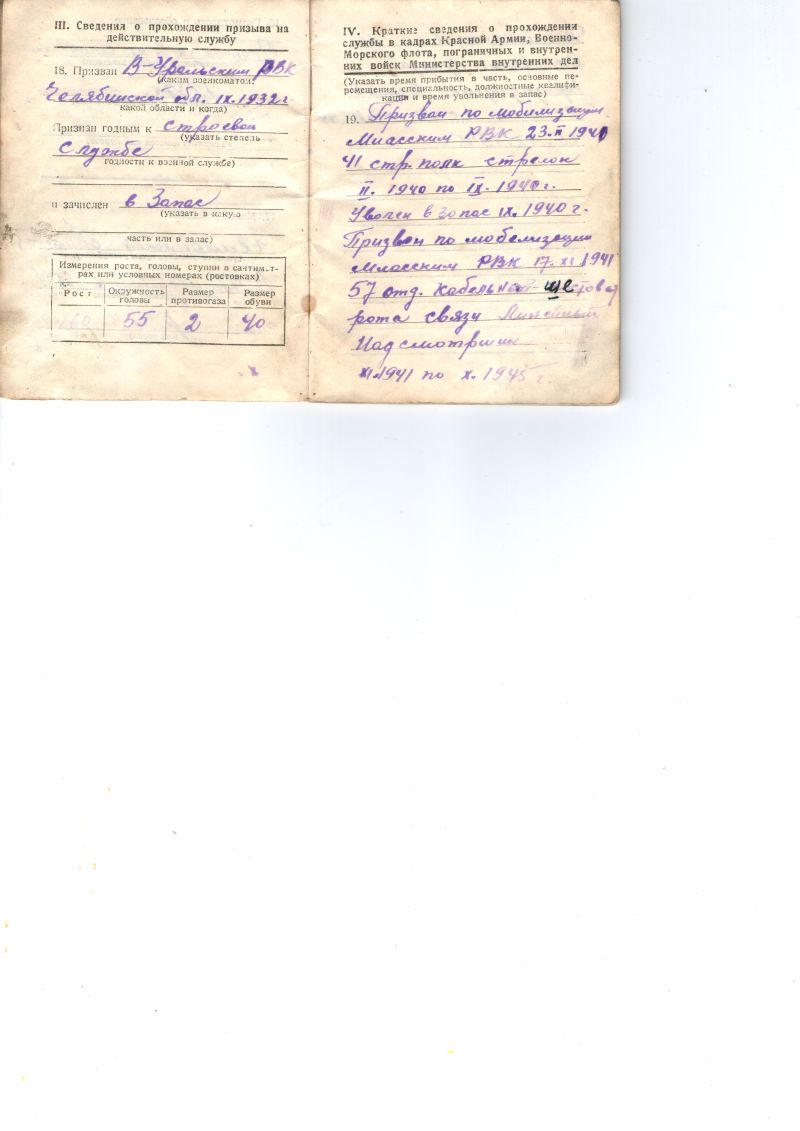 III. Сведения о прохождении призыва на
действительную службу
18. Призван В-Уральским РВК
(каким военкоматом,
Челябинской обл. IX.1932 г.
какой области и когда)
Признан годным к строевой
(указать степень
службе
годности к военной службе)
и зачислен в Запас
(Указать в какую
часть или в запас)
Измерения роста, головы, ступни в сантимет-
рах или условных номерах (ростовках)
Рост Окружность головы Размер противогаза Размер обуви
160 55 2 40
IV. Краткие сведения о прохождении
службы в кадрах Красной Армии, Военно-
Морского флота, пограничных и внутрен-
них войск Министерства внутренних дел
(Указать время прибытия в часть, основные пе-
ремещения, специальность, должностные квалифи-
кации и время увольнения в запас)
19. Призван по мобилизации
Миасским РВК 23.II 1940
41 стр. полк стрелок
II. 1940 по IX. 1940 г.
Уволен в запас IX. 1940 г.
Призван по мобелизации
Миасским РВК 17. XI. 1941
57 отд. Кабельно-шестовая
рота связи Линейный
Надсмотрщик
XI.1941 по X. 1945 г.